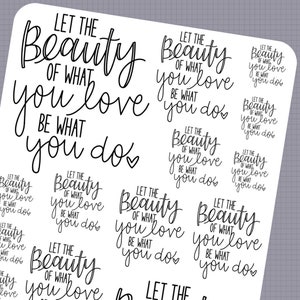 LET THE
Beauty
OF WHAT
you love
BE WHAT
you do
LET THE
Beauty
OF WHAT
you love
BE WHAT
you do
LET THE
Beauty
OF WHAT
you love
BE WHAT
you do
LET THE
Beauty
OF WHAT
you love
BE WHAT
you do
LET THE
Beauty
OF WHAT
you love
BE WHAT
you do
LET THE
Beauty
OF WHAT
you love
BE WHAT
you do
LET THE
Beauty
OF WHAT
you love
BE WHAT
you do
LET THE
Beauty
OF WHAT
you love
BE WHAT
you do
LET THE
Beauty
OF WHAT
you love
BE WHAT
you do
LET THE
Beauty
OF WHAT
you love
BE WHAT
LET THE